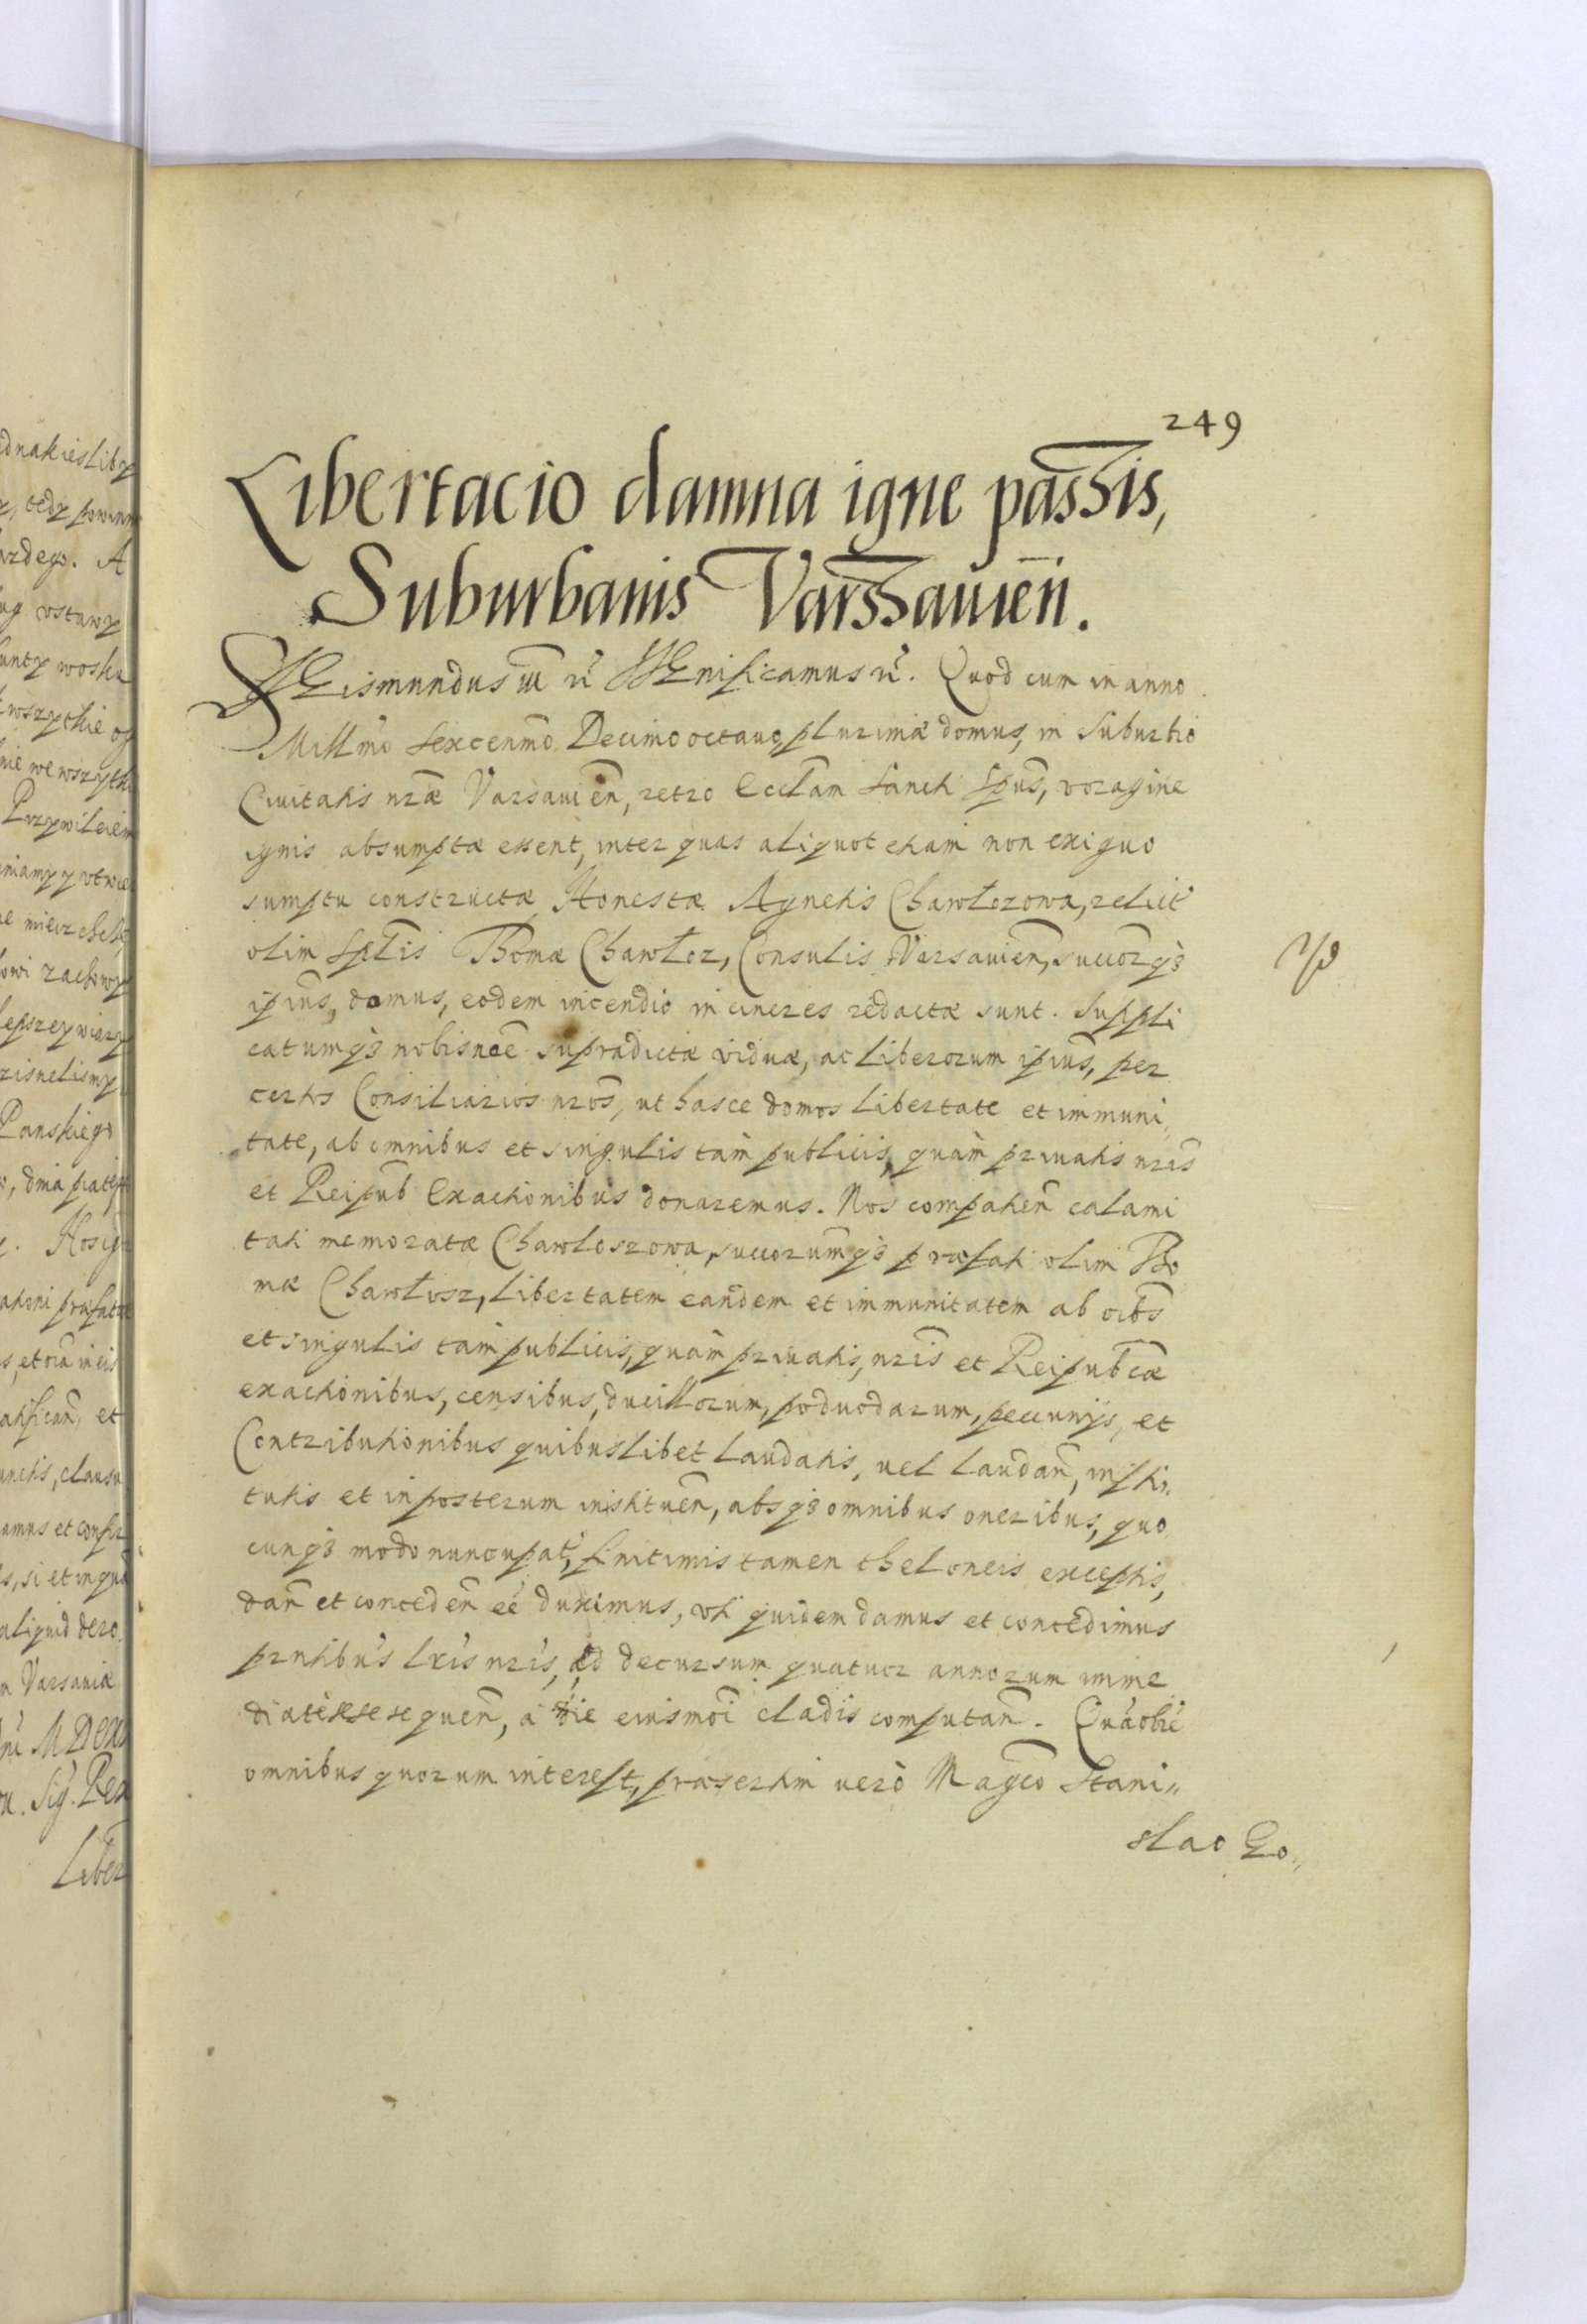 249
Libertacio damna igne passis,
Suburbanis Varssauien̄.
Sigismundus III etc̄ Significamus etc̄. Quod cum in anno
Millm̄o sexcenm̄o Decimo octauo, plurimæ domus, in suburbio
Ciuitatis nr̄æ Varsauien̄, retro Eccl̄am Sancti Sp̄us, voragine
ignis absumptæ essent, inter quas aliquot etiam non exiguo
sumptu constructæ Honestæ Agnetis Chawłozowa, relict̄
olim Sp̄tlis Thomæ Chawłoz, Consulis Varsauien̄, succor̄q3
ip̄ius, domus, eodem incendio in cineres redactæ sunt. Suppli
catumq3 nobis no̅e supradictæ viduæ, ac liberorum ip̄ius, per
certos Consiliarios nr̄os, ut hasce domos libertate et immuni„
tate, ab omnibus et singulis tàm publicis, quàm priuatis nr̄is
et Reipub̄ Exactionibus donaremus. Nos compatien̄ calami
tati memoratæ Chawłoszowa, succorum̄q3 præfati olim Tho
mæ Chawłosz, libertatem eandem et immunitatem ab oib̄s
et singulis tàm publicis, quàm priuatis, nr̄is et Reipub̄cæ
exactionibus, censibus, ducillorum, podwodarum, pecunijs, et
Contributionibus quibuslibet laudatis, uel laudan̄, insti„
tutis et inposterum instituen̄, absq3 omnibus oneribus, quo
cunq3 modo nuncupat̄, finitimis tamen theloneis exceptis,
dan̄ et conceden̄ ee̅ duximus, vti quidem damus et concedimus
pr̄ntibus lr̄is nr̄is, ad decursum quatuor annorum imme
diatè se sequen̄, à die eiusmōi cladis computan̄. Quaobre̅
omnibus quorum interest, præsertim uerò Mag̅co Stani„
slao Go„